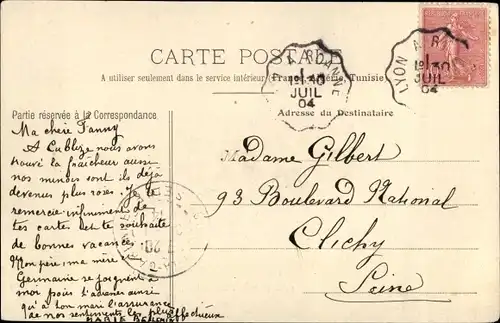 CARTE POSTALE
A utiliser seulement dans le service intérieur (France, Algérie, Tunisie)
LYON A ROANNE
1º 30
JUIL
04
LYON A R
1º 30
JUIL
04
Partie réservée à la Correspondance
Adresse du Destinataire
Ma chère Fanny
A Cublize nous avons
trouvé la fraîcheur aussi
nos minois sont ils déjà
devenus plus roses. Je te
remercie infiniment de
tes cartes et te souhaite
de bonnes vacances.
Mon père, ma mère
Germaine se joignent à
moi pour t'adresser ainsi
qu'à ton mari l'assurance
de nos sentiments les plus affectueux
MARIE
Madame Gilbert
93 Boulevard National
Clichy
Seine